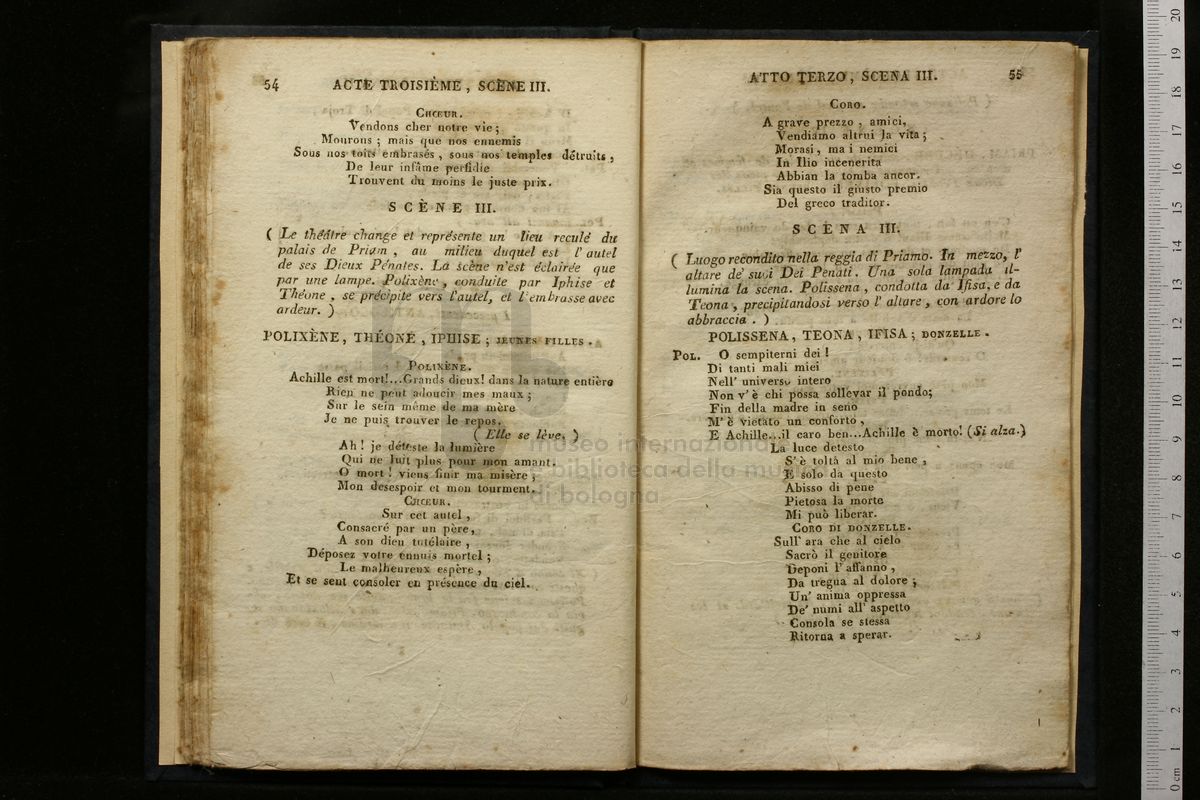 54 ACTE TROISIÈME, SCÈNE III.
CHŒUR.
Vendons cher notre vie;
Mourons; mais que nos ennemis
Sous nos toits embrasés, sous nos temples détruits,
De leur infâme perfidie
Trouvent du moins le juste prix.
SCÈNE III.
( Le théâtre change et représente un lieu reculé du
palais de Priam, au milieu duquel est l'autel
de ses Dieux Pénates. La scène n'est éclairée que
par une lampe. Polixène, conduite par Iphise et
Théone, se précipite vers l'autel, et l'embrasse avec
ardeur. )
POLIXÈNE, THÉONE, IPHISE; JEUNES FILLES.
POLIXÈNE.
Achille est mort!...Grands dieux! dans la nature entière
Rien ne peut adoucir mes maux;
Sur le sein même de ma mère
Je ne puis trouver le repos.
( Elle se lève. )
Ah! je déteste la lumière
Qui ne luit plus pour mon amant.
O mort! viens finir ma misère;
Mon desespoir et mon tourment.
CHŒUR.
Sur cet autel,
Consacré par un père,
A son dieu tutélaire,
Déposez votre ennuis mortel;
Le malheureux espère,
Et se sent consoler en présence du ciel.
ATTO TERZO, SCENA III. 55
CORO.
A grave prezzo, amici,
Vendiamo altrui la vita;
Morasi, ma i nemici
In Ilio incenerita
Abbian la tomba ancor.
Sia questo il giusto premio
Del greco traditor.
SCENA III.
( Luogo recondito nella reggia di Priamo. In mezzo, l'
altare de' suoi Dei Penati. Una sola lampada il-
lumina la scena. Polissena, condotta da Ifisa, e da
Teona, precipitandosi verso l' altare, con ardore lo
abbraccia. )
POLISSENA, TEONA, IFISA; DONZELLE.
POL. O sempiterni dei!
Di tanti mali miei
Nell' universo intero
Non v' è chi possa sollevar il pondo;
Fin della madre in seno
M' è vietato un conforto,
E Achille...il caro ben...Achille è morto! (Si alza.)
La luce detesto
S' è tolta al mio bene,
E solo da questo
Abisso di pene
Pietosa la morte
Mi può liberar.
CORO DI DONZELLE.
Sull' ara che al cielo
Sacrò il genitore
Deponi l' affanno,
Da tregua al dolore;
Un' anima oppressa
De' numi all' aspetto
Consola se stessa
Ritorna a sperar.
museo internazionale
e biblioteca della musica
di bologna
0 cm 1 2 3 4 5 6 7 8 9 10 11 12 13 14 15 16 17 18 19 20